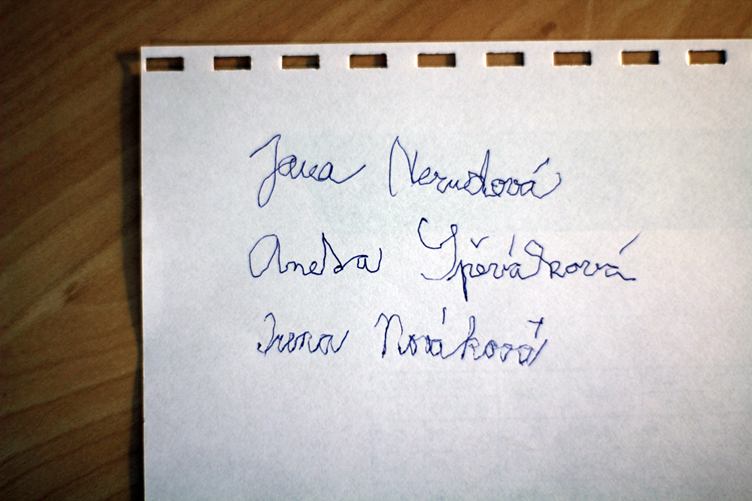 Jana Nerudová
Aneta Spěváčková
Irena Nováková